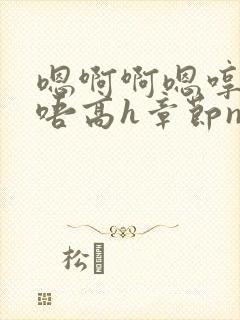 嗯啊啊嗯哼
唔高h章節n
松